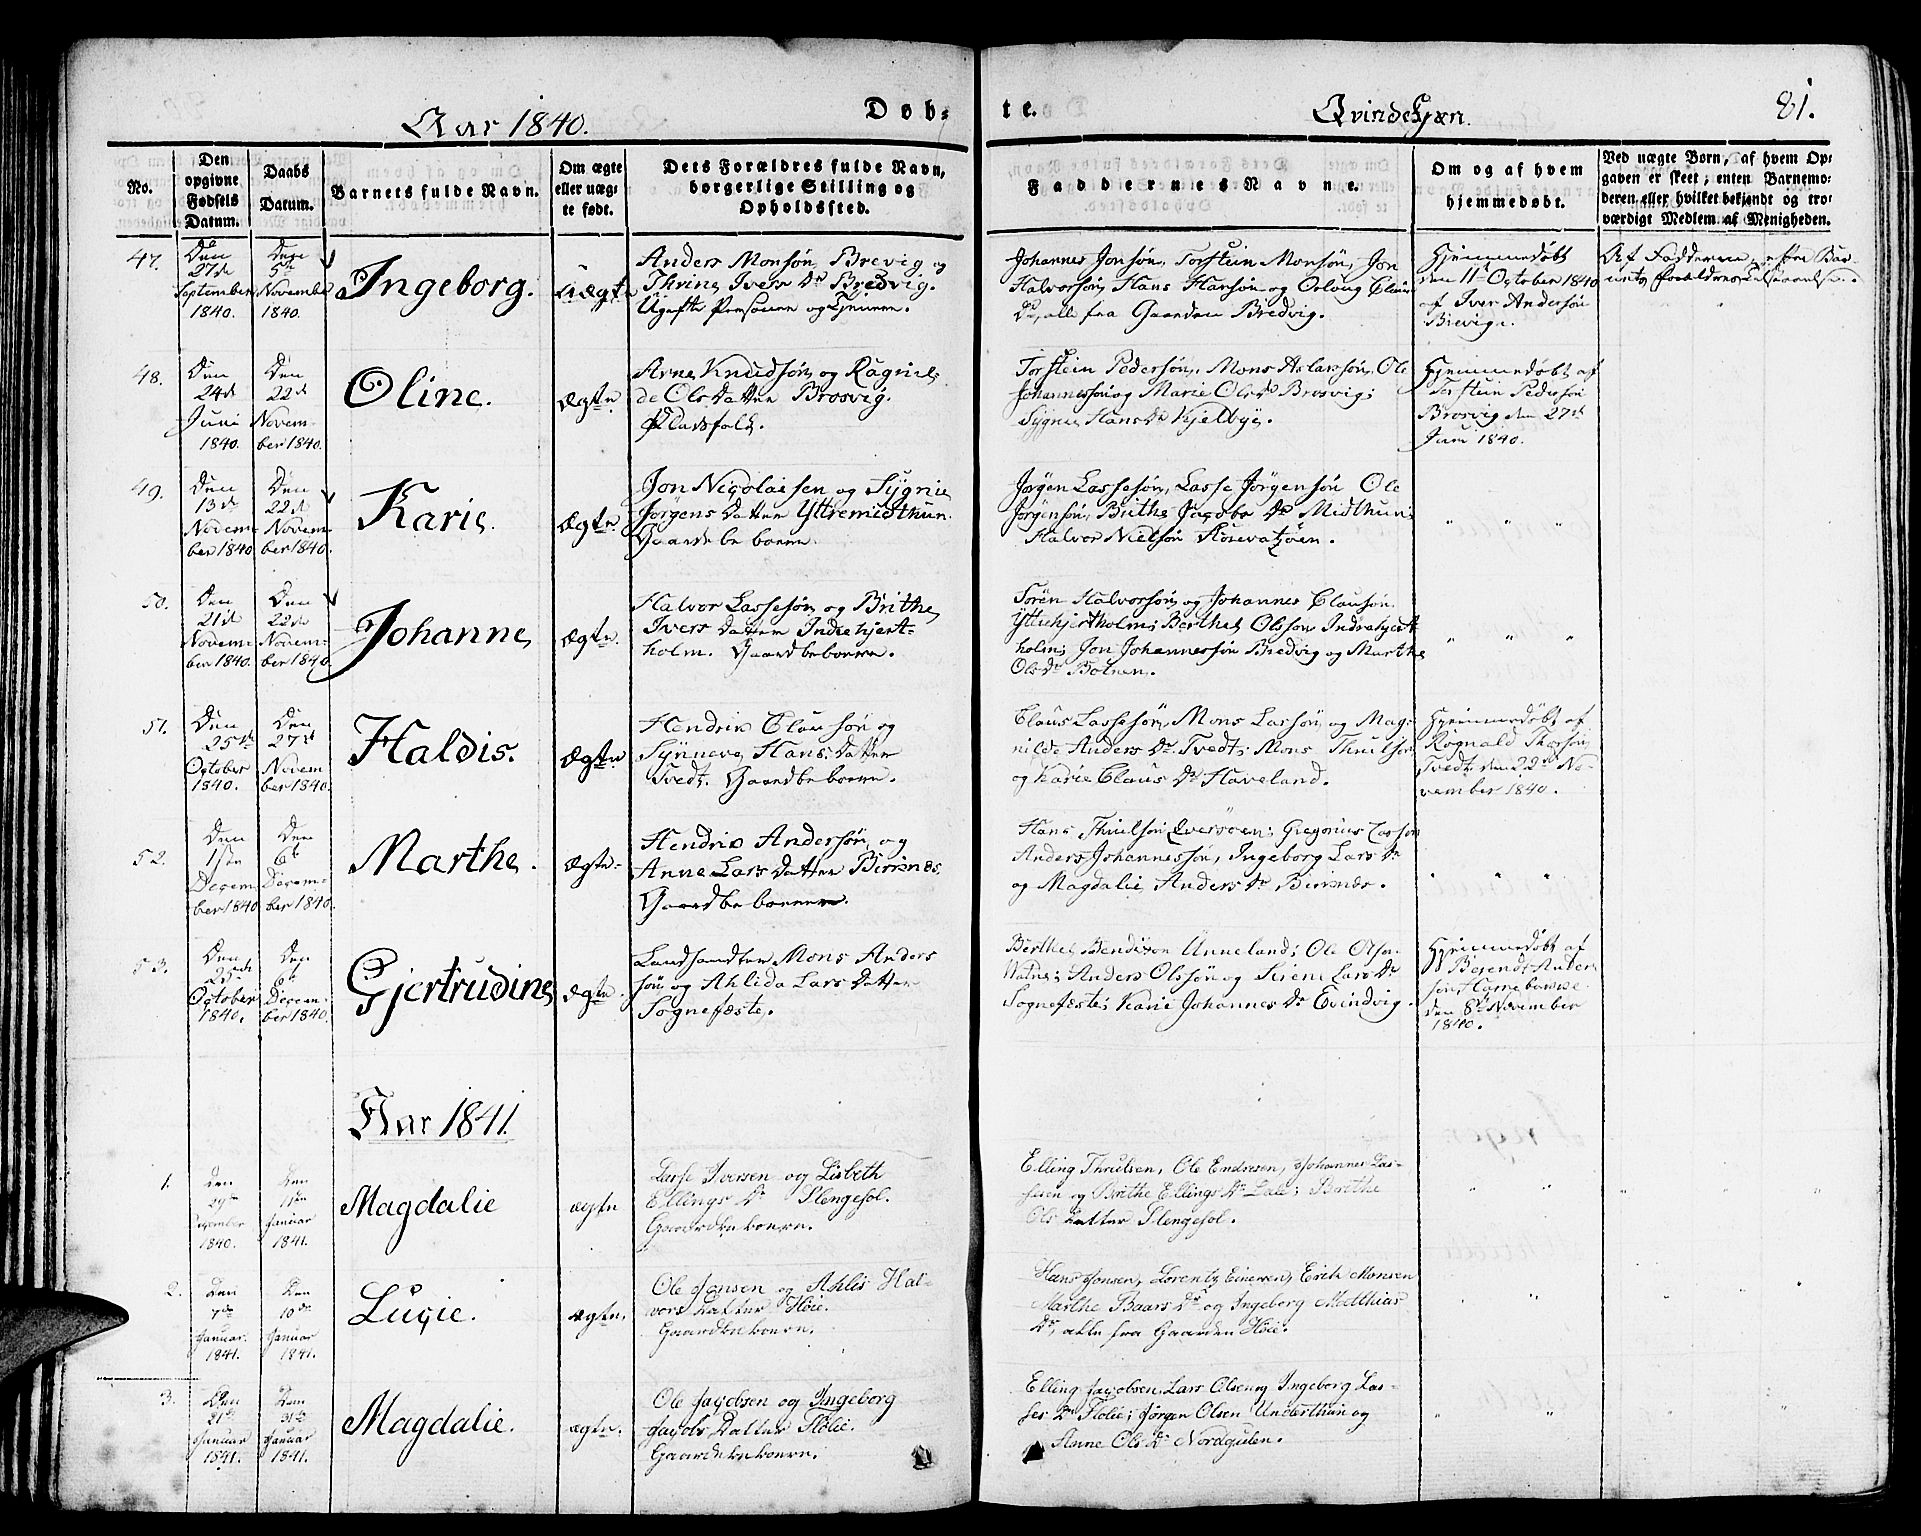 Aar 1840.
Døb-
te.
Qvindekjøn.
81.
No.
Den
opgivne
Fødsels
Datum.
Daabs
Datum.
Barnets fulde Navn.
Om ægte
eller uæg-
te født.
Dets Forældres fulde Navn,
borgerlige Stilling og
Opholdssted.
Faddernes Navne.
Om og af hvem
hjemmedøbt.
Ved uægte Børn, af hvem Op-
gaven er skeet; enten Barnemo-
deren eller hvilket bekjendt og tro-
værdigt Medlem af Menigheden.
47.
Den
27de
September
1840.
Den
5te
November
1840.
Ingeborg.
uægte
Anders Monsøn Brevig og
Thrine Ivers Dr Bredvig.
Ugifte Personer og Tjenere.
Johannes Jonsøn, Torstein Monsøn, Jon
Halvorsøn, Hans Hansøn og Orloug Claus
Dr, alle fra Gaarden Bredvig.
Hjemmedøbt
den 11te October 1840
af Iver Andersøn
Brevig.
Af Fadderne, efter Bar-
nets Forældres
48.
Den
24de
Juni
1840.
Den
22de
Novem-
ber 1840.
Oline.
ægte.
Arne Knudsøn og Ragnil-
de Ols Datter Brosvig.
Pladsfolk.
Torstein Pedersøn, Mons Aslaksøn, Ole
Johannessøn og Marie Ols Dr Brosvig;
Sygnie Hans Dr Kjelbye.
Hjemmedøbt af
Torstein Pedersøn
Brosvig den 27de
Juni 1840.
49.
Den
13de
Novem-
ber 1840
Den
22de
Novem-
ber 1840.
Karie.
ægte.
Jon Nicolaisen og Sygnie
Jørgens Datter Yttremidthun.
Gaardbeboere.
Jørgen Lassesøn, Lasse Jørgensøn Ole
Jørgensøn, Brithe Jacobs Dr Midthun;
Halvor Nielsøn
" " "
50.
Den
21de
Novem-
ber 1840.
Den
22de
Novem-
ber 1840
Johanne
ægte.
Halvor Lassesøn og Brithe
Ivers Datter Indrehjert-
holm. Gaardbeboere.
Søren Halvorsøn og Johannes Clausøn
Yttrehjertholm; Berthel Olsson Indrehjert-
holm; Jon Johannessøn Bredvig og Marthe
Ols Dr Botnen.
" " "
51.
Den
25de
October
1840.
Den
27de
Novem
ber 1840.
Haldis.
ægte
Hendrik Clausøn og
Synneve Hans Datter
Tvedt. Gaardbeboere.
Claus Lassesøn, Mons Lassøn og Mag-
nilde Anders Dr Tvedt; Mons Thuelsøn
og Karie Claus Dr Haveland.
Hjemmedøbt af
Rognald Thorsøn
Tvedt den 22de No-
vember 1840.
52.
Den
1ste
Decem
ber 1840
Den
6te
Decem-
ber 1840.
Marthe.
ægte.
Hendrik Andersøn og
Anne Lars Datter Birknes
Gaardbeboere.
Hans Thuelsøn Qversøen; Gregorius Larssøn
Anders Johannessøn, Ingeborg Lars Dr
og Magdalie Anders Dr Birknes.
" " "
53.
Den
25de
October
1840.
Den
6te
Decem-
ber 1840.
Gjertrudine
ægte.
Landhandler Mons Anders
søn og Ahlida Lars Datter
Sognefæste.
Berthel Bendixon Unneland; Ole Olsøn
Watne; Anders Olssøn og Sirene Lars Dr
Sognefæste; Karie Johannes Dr Evindvig.
Hjemmedøbt af
Berendt Ander
søn
den 8de November
1840.
Aar 1841.
1.
den
29de
December
1840.
den
1ste
Januar
1841.
Magdalie
ægte
Lasse Iversen og Lisbeth
Ellings Dr Slengesol.
Gaardbeboere.
Elling Thrulsen, Ole Endresen, Johannes Las-
sesen og Brithe Ellings Dr Lale; Brithe
Ols Datter Slengesol.
" " " " "
2.
Den
7de
Januar.
1841.
Den
10de
Januar
1841.
Lucie.
ægte.
Ole Jonsen og Ahlis Hal-
vors Datter Høie.
Gaardbeboere.
Hans Jonsen, Lorentz Einersen, Erik Monsen
Marthe Baars Dr og Ingeborg Matthias
Dr, alle fra Gaarden Høie.
" " " " "
3.
Den
21de
Januar
1841.
Den
31te
Januar
1841.
Magdalie.
ægte.
Ole Jacobsen og Ingeborg
Jacobs Datter Flolie.
Gaardbeboere.
Elling Jacobsen, Lars Olsen og Ingeborg Las-
ses Dr Flolie; Jørgen Olsen Underthun og
Anne Ols Dr Nordgulen.
" " " "